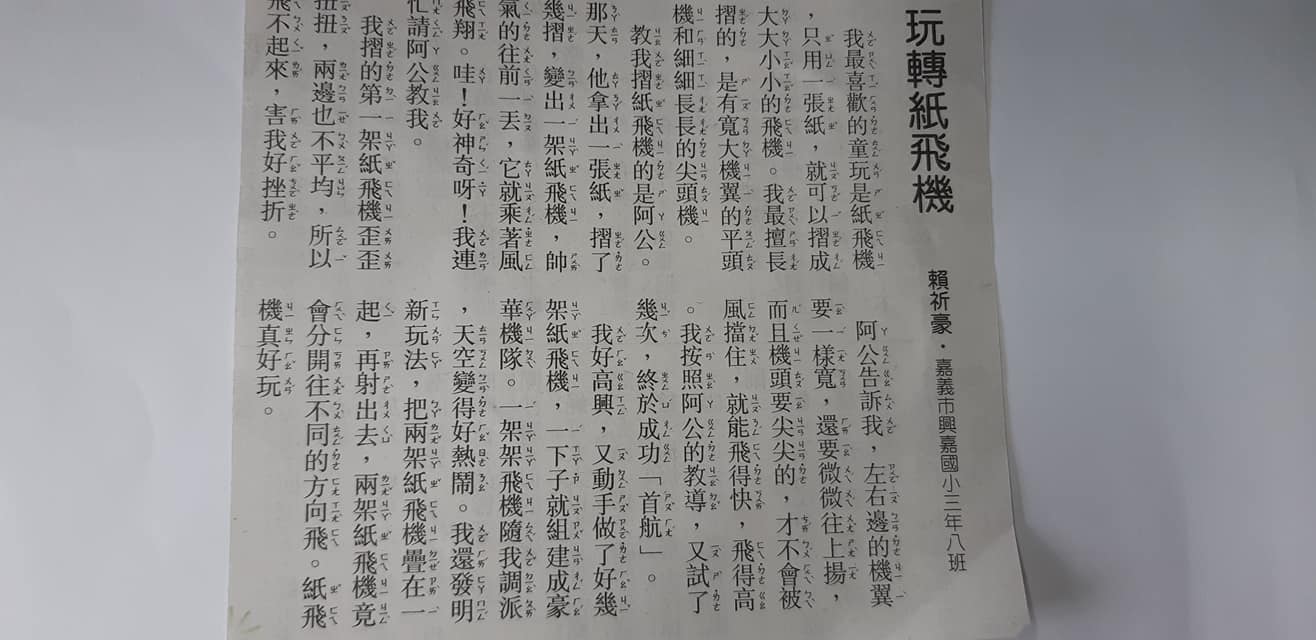 玩轉紙飛機
賴祈豪・嘉義市興嘉國小三年八班
我最喜歡的童玩是紙飛機
，只用一張紙，就可以摺成
大大小小的飛機。我最擅長
摺的，是有寬大機翼的平頭
機和細細長長的尖頭機。
教我摺紙飛機的是阿公。
那天，他拿出一張紙，摺了
幾摺，變出一架紙飛機，帥
氣的往前一丟，它就乘著風
飛翔。哇！好神奇呀！我連
忙請阿公教我。
我摺的第一架紙飛機歪歪
扭扭，兩邊也不平均，所以
飛不起來，害我好挫折。
阿公告訴我，左右邊的機翼
要一樣寬，還要微微往上揚，
而且機頭要尖尖的，才不會被
風擋住，就能飛得快，飛得高
。我按照阿公的教導，又試了
幾次，終於成功「首航」。
我好高興，又動手做了好幾
架紙飛機，一下子就組建成豪
華機隊。一架架飛機隨我調派
，天空變得好熱鬧。我還發明
新玩法，把兩架紙飛機疊在一
起，再射出去，兩架紙飛機竟
會分開往不同的方向飛。紙飛
機真好玩。